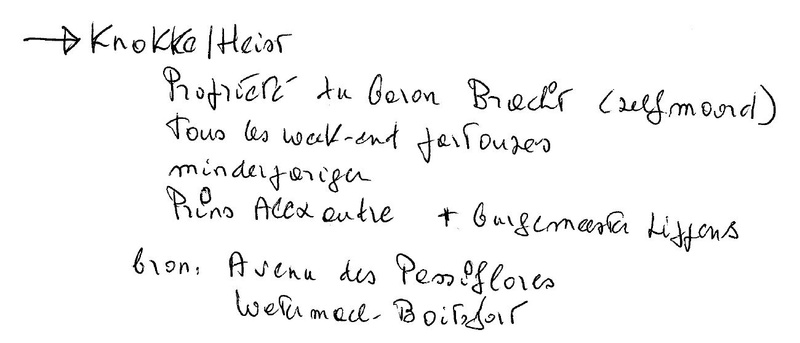 → Knokke/Heist
Propriété du baron Bracht (zelfmoord)
tous les week-end partouzes
minderjarigen
Prins Alexandre + burgemeester Lippens
bron: Avenu des Passiflores
Watermael-Boitsfort